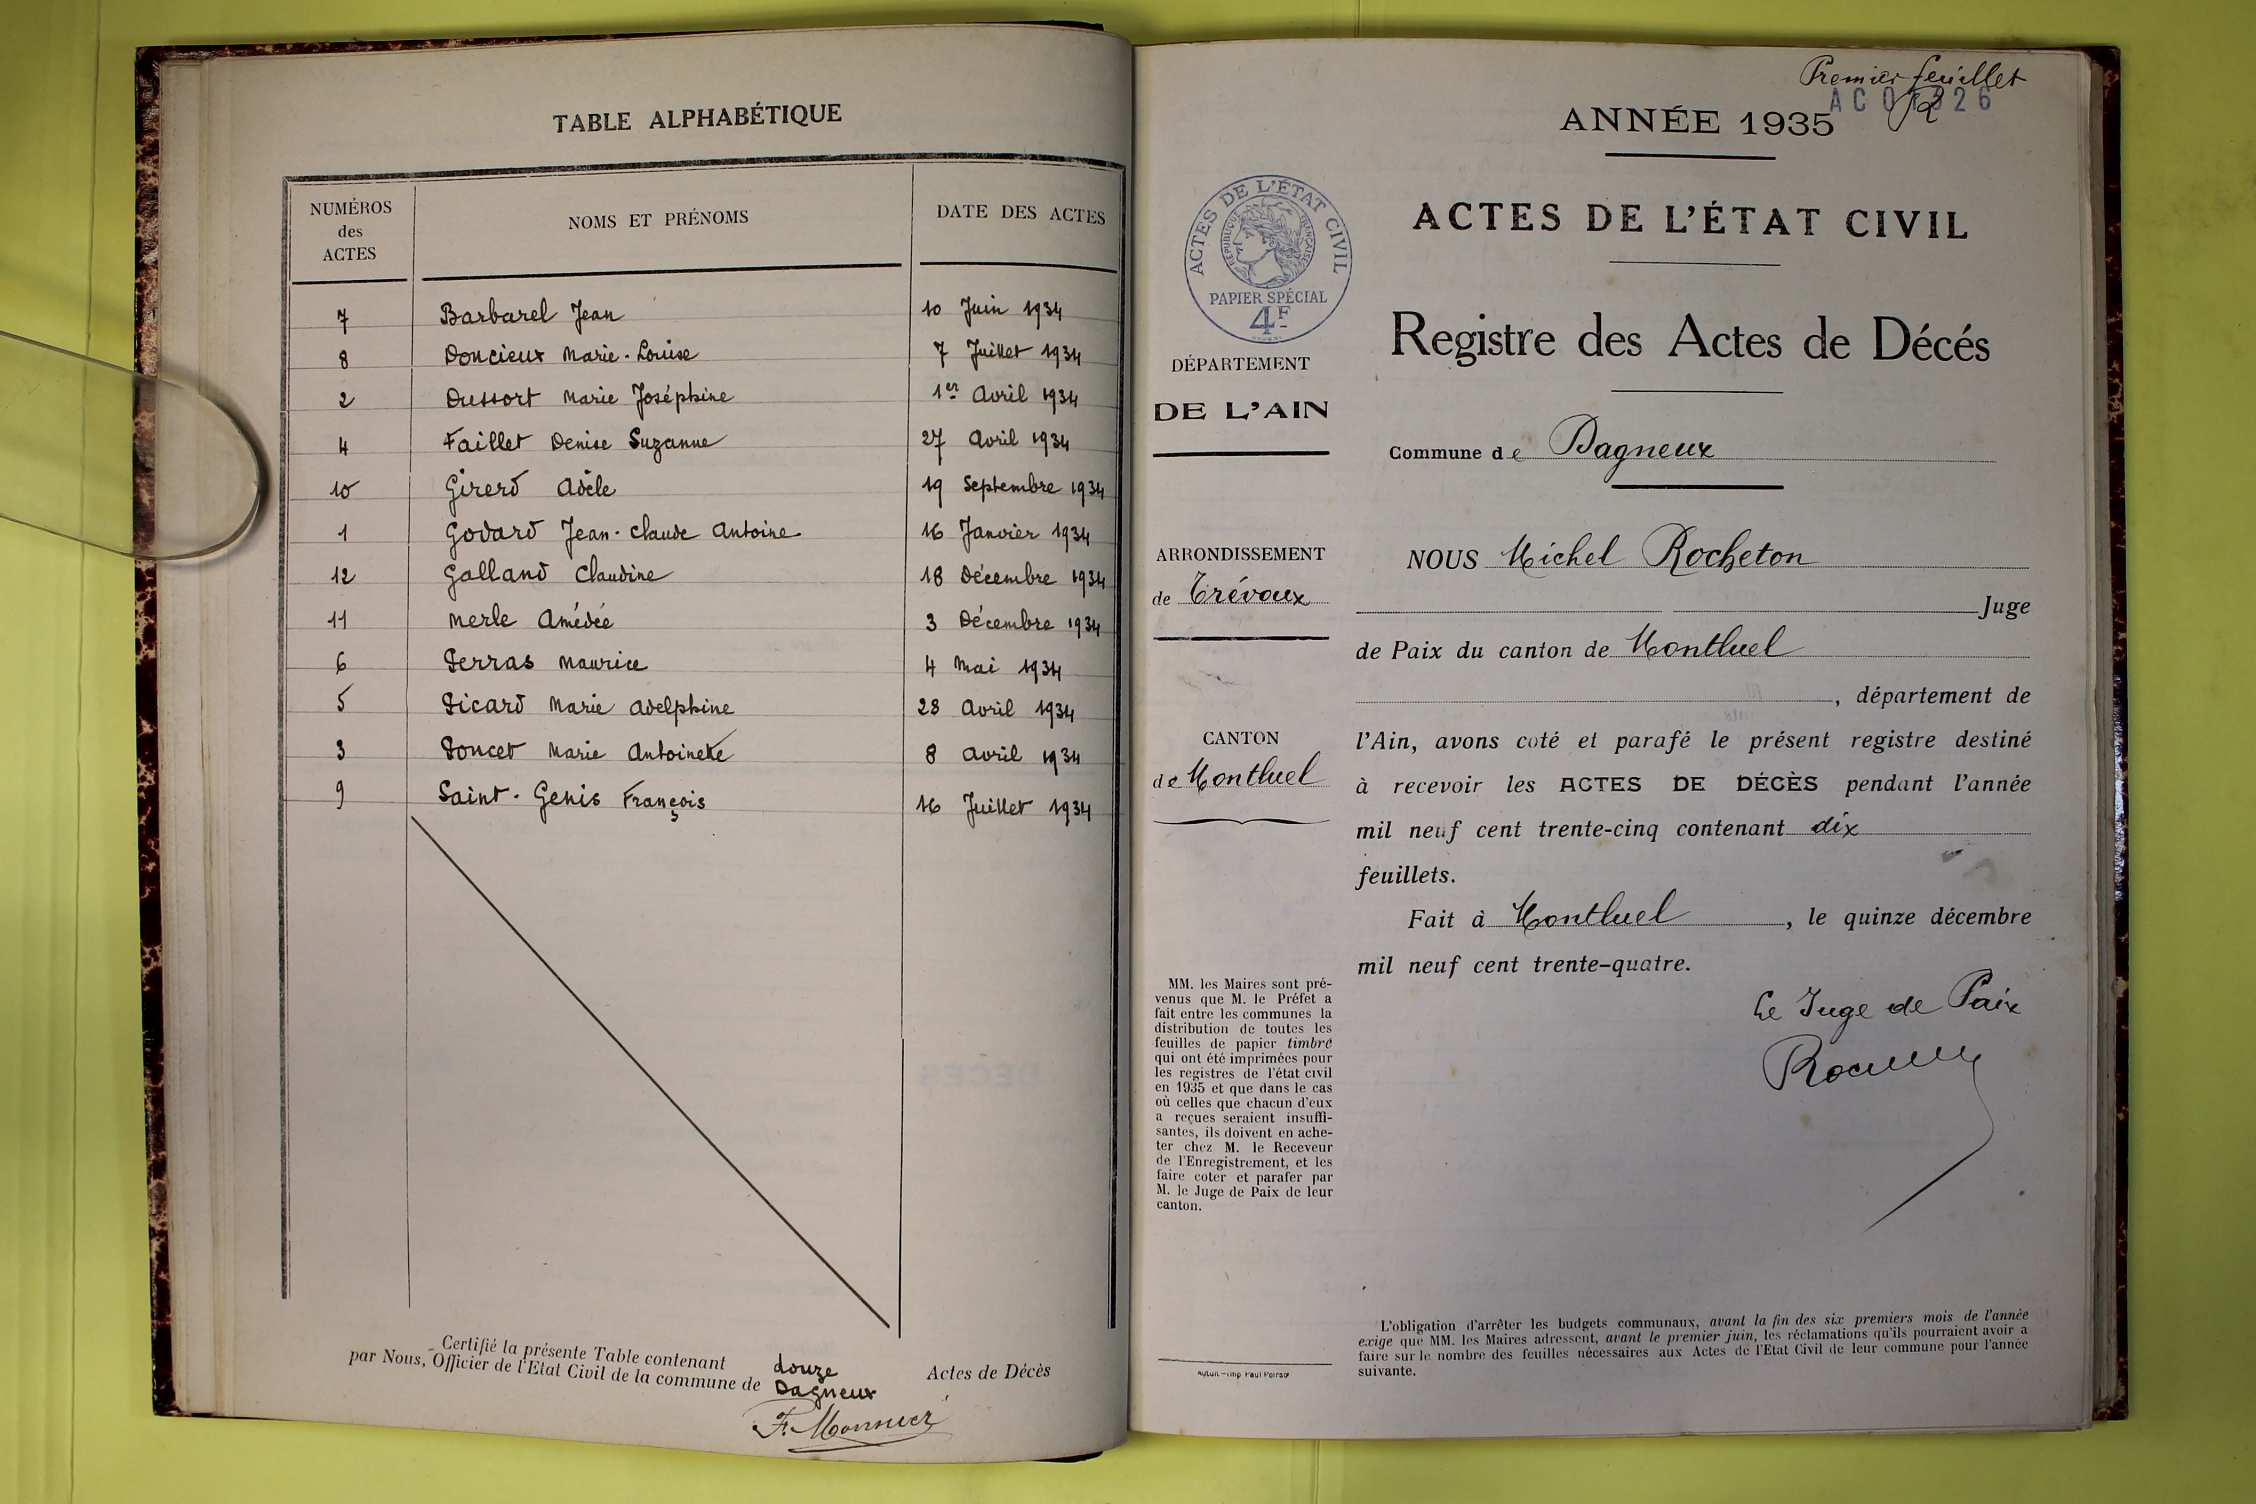 TABLE ALPHABÉTIQUE
NUMÉROS des ACTES
NOMS ET PRÉNOMS
DATE DES ACTES
7 Barbarel Jean 10 Juin 1934
8 Doncieux Marie-Louise 7 Juillet 1934
2 Dussort Marie Joséphine 1er Avril 1934
4 Faillet Denise Suzanne 27 Avril 1934
10 Girerd Adèle 19 Septembre 1934
1 Godard Jean-Claude Antoine 16 Janvier 1934
12 Golland Claudine 18 Décembre 1934
11 Merle Amédée 3 Décembre 1934
6 Perras Maurice 4 Mai 1934
5 Picard Marie Adelphine 28 Avril 1934
3 Poncet Marie Antoinette 8 Avril 1934
9 Saint-Genis François 16 Juillet 1934
Certifié la présente Table contenant douze Actes de Décès
par Nous, Officier de l'Etat Civil de la commune de Dagneux
F. Monnier
Premier feuillet
ANNÉE 1935
ACTES DE L'ÉTAT CIVIL
RÉPUBLIQUE FRANÇAISE
PAPIER SPÉCIAL
4F
ACTES DE L'ÉTAT CIVIL
Registre des Actes de Décés
DÉPARTEMENT
DE L'AIN
Commune de Dagneux
ARRONDISSEMENT
de Trévoux
CANTON
de Montluel
NOUS Michel Rocheton
Juge
de Paix du canton de Montluel
, département de
l'Ain, avons coté et parafé le présent registre destiné
à recevoir les ACTES DE DÉCÈS pendant l'année
mil neuf cent trente-cinq contenant dix
feuillets.
Fait à Montluel, le quinze décembre
mil neuf cent trente-quatre.
Le Juge de Paix
MM. les Maires sont pré-
venus que M. le Préfet a
fait entre les communes la
distribution de toutes les
feuilles de papier timbré
qui ont été imprimées pour
les registres de l'état civil
en 1935 et que dans le cas
où celles que chacun d'eux
a reçues seraient insuffi-
santes, ils doivent en ache-
ter chez M. le Receveur
de l'Enregistrement, et les
faire coter et parafer par
M. le Juge de Paix de leur
canton.
Autun.-Imp Paul Poirson
L'obligation d'arrêter les budgets communaux, avant la fin des six premiers mois de l'année
exige que MM. les Maires adressent, avant le premier juin, les réclamations qu'ils pourraient avoir a
faire sur le nombre des feuilles nécessaires aux Actes de l'Etat Civil de leur commune pour l'année
suivante.